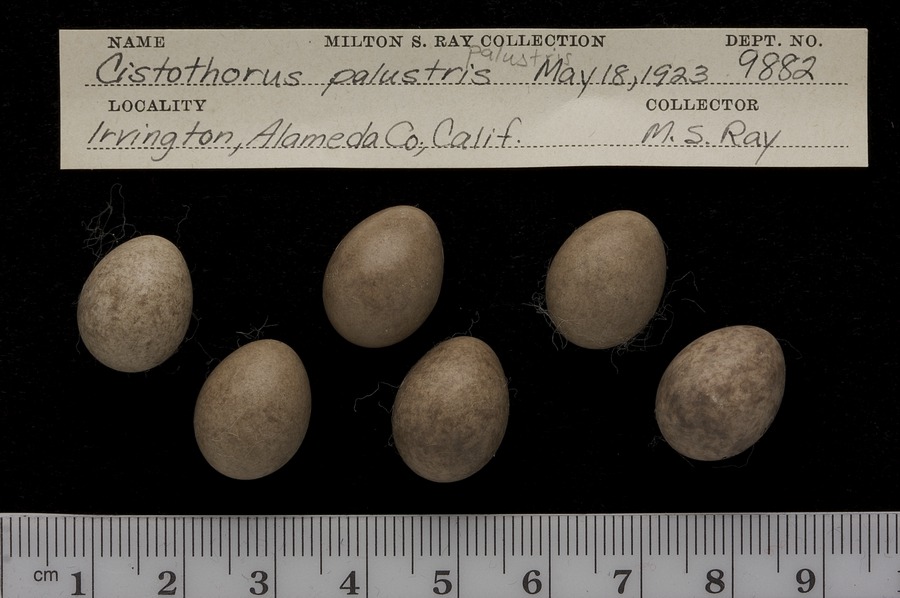 NAME MILTON S. RAY COLLECTION DEPT. NO.
palustris
Cistothorus palustris May 18, 1923 9882
LOCALITY COLLECTOR
Irvington, Alameda Co., Calif. M. S. Ray
cm 1 2 3 4 5 6 7 8 9